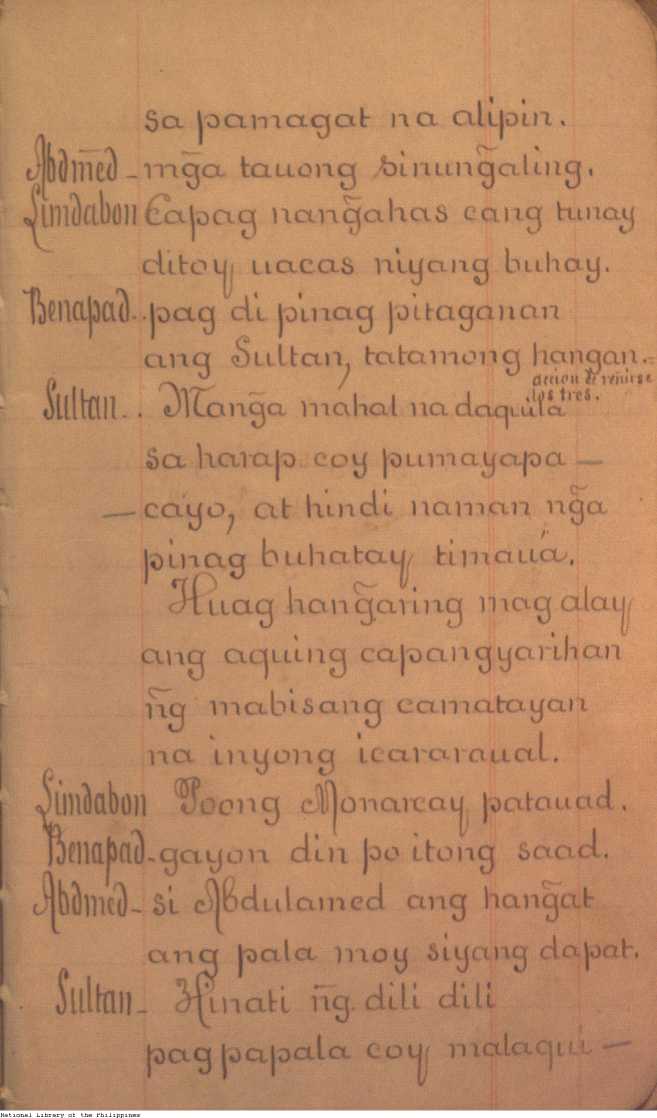 sa pamagat na alipin.
Abdmēd - mg̃a tauong sinung̃aling.
Limdabon Capag nang̃ahas cang tunay
ditoy uacas niyang buhay.
Benapad.. pag di pinag pitaganan
ang Sultan, tatamong hangan.=
accion de reñirse
los tres.
Sultan.. Mang̃a mahal na daquila
sa harap coy pumayapa —
— cayo, at hindi naman ng̃a
pinag buhatay timauä.
Huag hang̃aring mag alay
ang aquing capangyarihan
ñg mabisang camatayan
na inyong icararaual.
Limdabon Poong Monarcay patauad.
Benapad - gayon din po itong saad.
Abdmēd - si Abdulamed ang hang̃at
ang pala moy siyang dapat.
Sultan - Hinati ñg. dili dili
pagpapala coy malaqui —
National Library of the Philippines